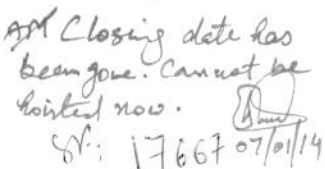 APT Closing date has
been gone. Cannot be
hoisted now.
Sr: 17667 07/01/14